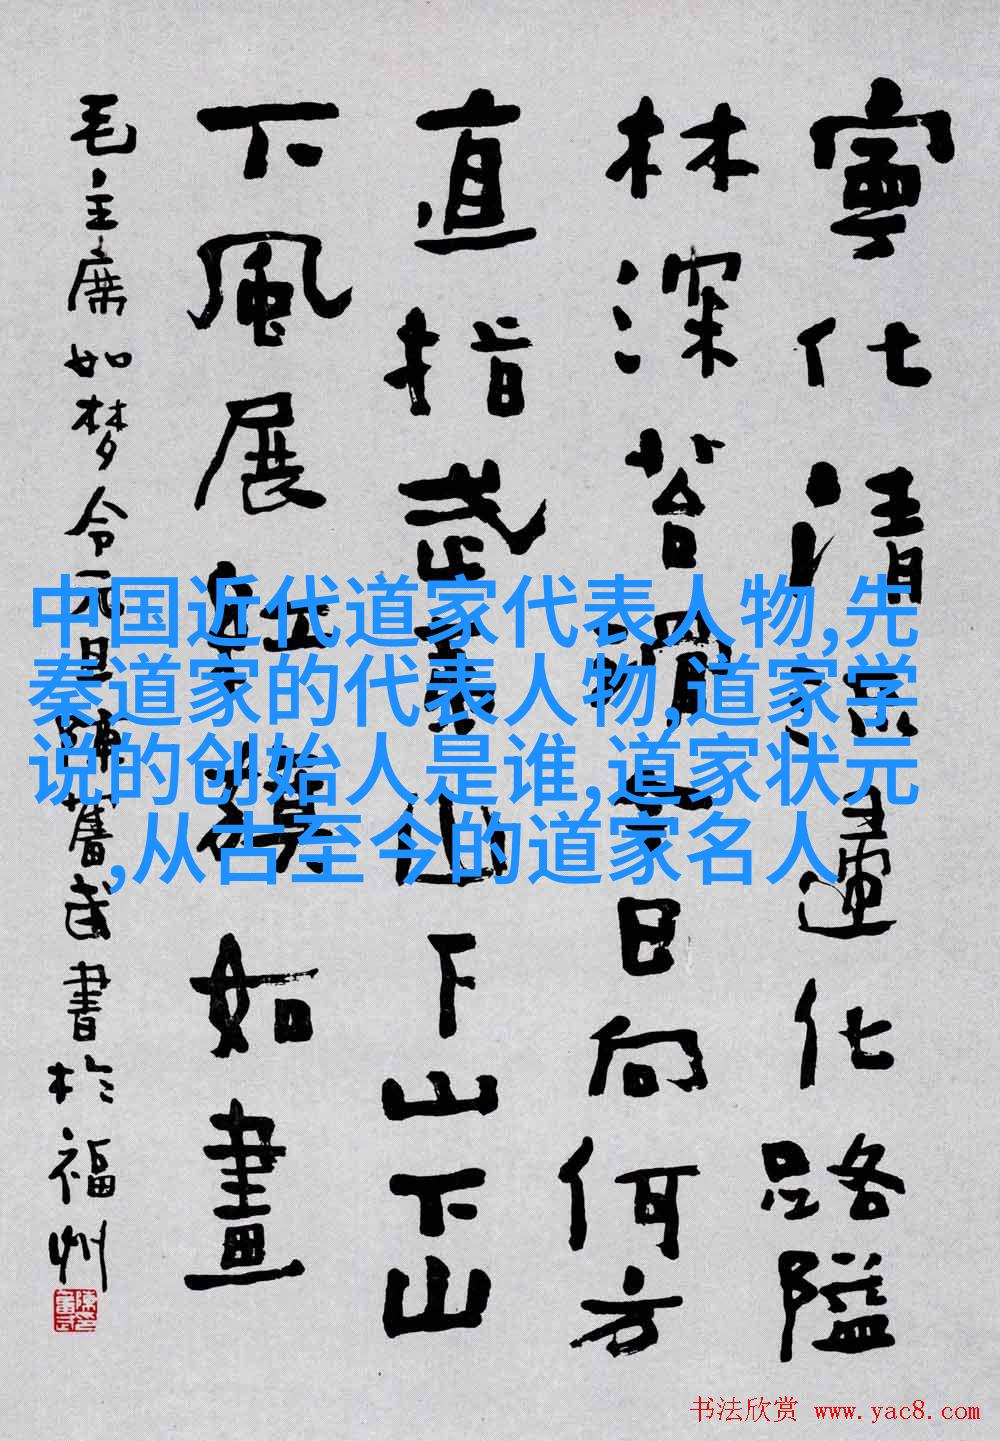 寧化清流歸化路隘
林深苔滑今日向何方
直指武夷山下山下山
下風展紅旗如畫
毛主席如梦令元旦陳奮武書於福州
中国近代道家代表人物,先
秦道家的代表人物,道家学
说的创始人是谁,道家状元
,从古至今的道家名人
书法欣赏 www.yac8.com